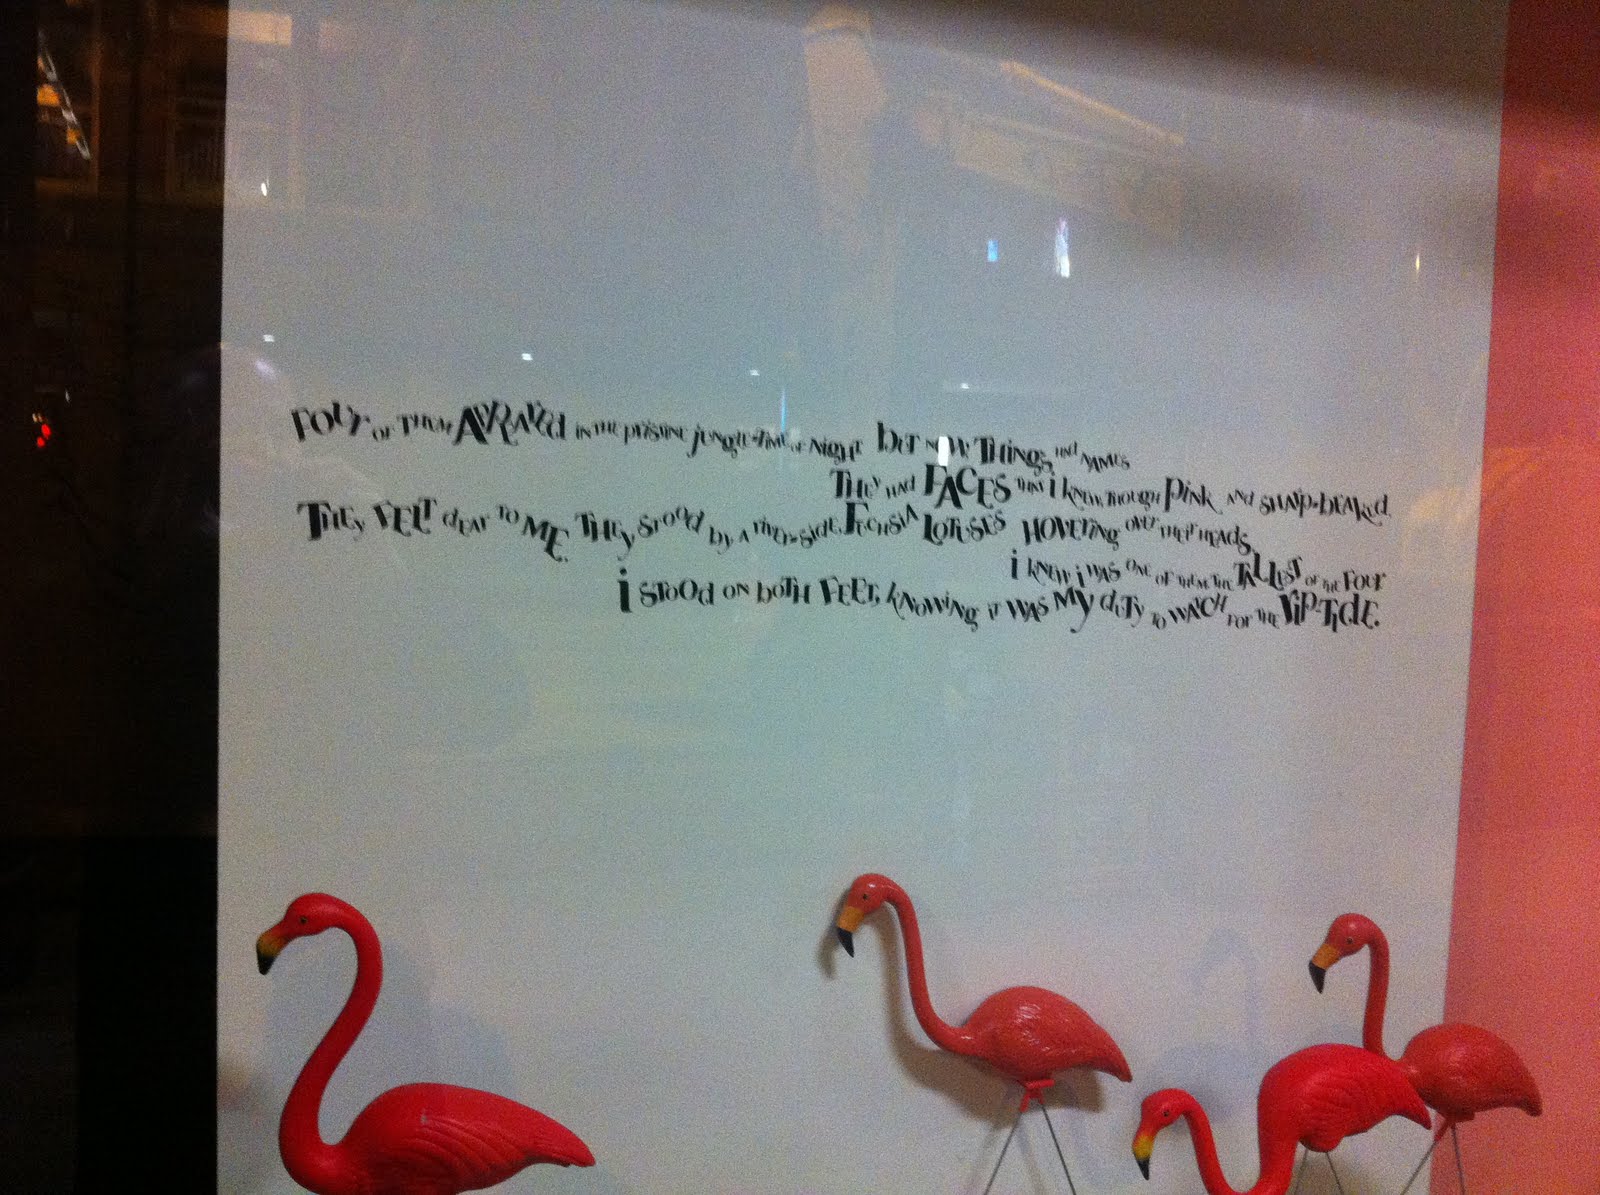 FOUr OF THEM ArrAYEd IN THE prISTINE jUNglE-TIME OF NIgHT bUT NOW, THINgS HAd NAMES
THEY HAd FACES THAT i kNEW, THOUgH pINk ANd SHArp-bEAkEd.
THEy FELT dEAr TO ME. THEy STOOd by A rIVEr-SIdE, FUCHSIA LOTUSES HOVErINg OVEr THEIr HEAdS,
i kNEW i WAS ONE OF THEM, THE TALLEST OF THE FOUr
i STOOd ON bOTH FEET, kNOWINg IT WAS My dUTy TO WATCH FOr THE rIp-TIdE.